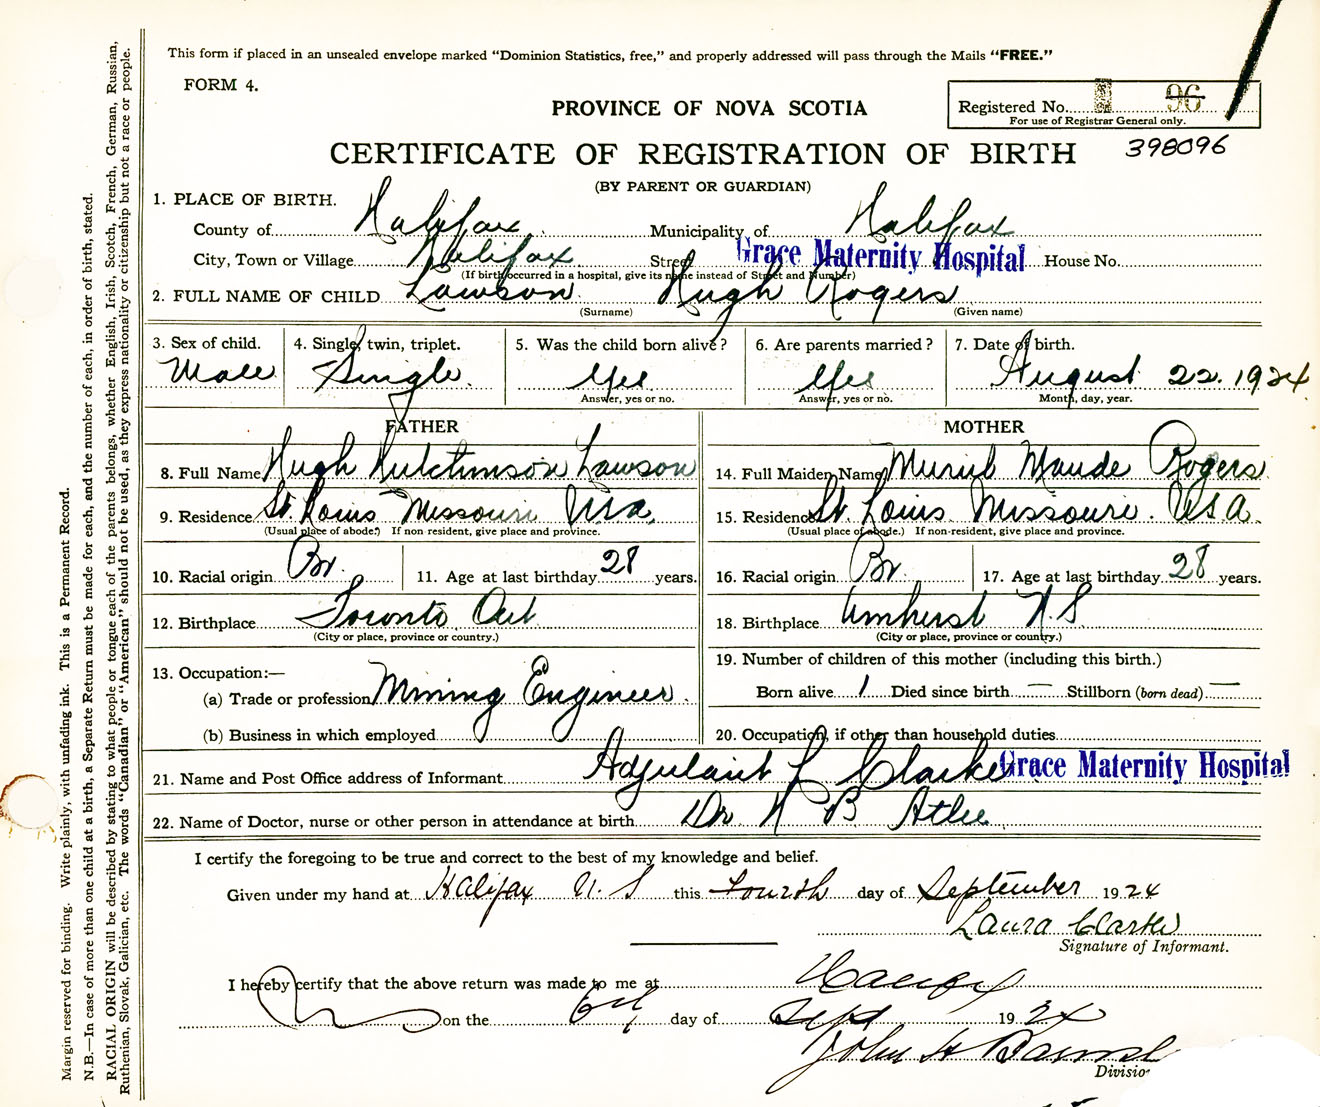 This form if placed in an unsealed envelope marked “Dominion Statistics, free,” and properly addressed will pass through the Mails “FREE.”
FORM 4.
PROVINCE OF NOVA SCOTIA
Registered No. 96
For use of Registrar General only.
CERTIFICATE OF REGISTRATION OF BIRTH
398096
(BY PARENT OR GUARDIAN)
1. PLACE OF BIRTH.
County of Halifax Municipality of Halifax
City, Town or Village Halifax Street Grace Maternity Hospital House No.
(If birth occurred in a hospital, give its name instead of Street and Number)
2. FULL NAME OF CHILD Lawson Hugh Rogers
(Surname) (Given name)
3. Sex of child. 4. Single, twin, triplet. 5. Was the child born alive? 6. Are parents married? 7. Date of birth.
Male Single Yes Yes August 22. 1924.
Answer, yes or no. Answer, yes or no. Month, day, year.
FATHER MOTHER
8. Full Name Hugh Hutchinson Lawson 14. Full Maiden Name Muriel Maude Rogers
9. Residence St Louis Missouri USA. 15. Residence St. Louis Missouri. USA.
(Usual place of abode.) If non resident, give place and province. (Usual place of abode.) If non-resident, give place and province.
10. Racial origin Br. 11. Age at last birthday 28 years. 16. Racial origin Br. 17. Age at last birthday 28 years.
12. Birthplace Toronto Ont 18. Birthplace Amherst N.S
(City or place, province or country.) (City or place, province or country.)
13. Occupation:— 19. Number of children of this mother (including this birth.)
(a) Trade or profession Mining Engineer. Born alive 1 Died since birth — Stillborn (born dead) —
(b) Business in which employed 20. Occupation, if other than household duties
21. Name and Post Office address of Informant Adjutant L Clarke Grace Maternity Hospital
22. Name of Doctor, nurse or other person in attendance at birth Dr H B Atlee
I certify the foregoing to be true and correct to the best of my knowledge and belief.
Given under my hand at Halifax N. S this Fourth day of September 1924
Laura Clarke
Signature of Informant.
I hereby certify that the above return was made to me at Halifax
on the 6th day of Sept 1924
John H
Divisio
Margin reserved for binding. Write plainly, with unfading ink. This is a Permanent Record.
N.B.—In case of more than one child at a birth, a Separate Return must be made for each, and the number of each, in order of birth, stated.
RACIAL ORIGIN will be described by stating to what people or tongue each of the parents belongs, whether English, Irish, Scotch, French, German, Russian,
Ruthenian, Slovak, Galician, etc. The words “Canadian” or “American” should not be used, as they express nationality or citizenship but not a race or people.